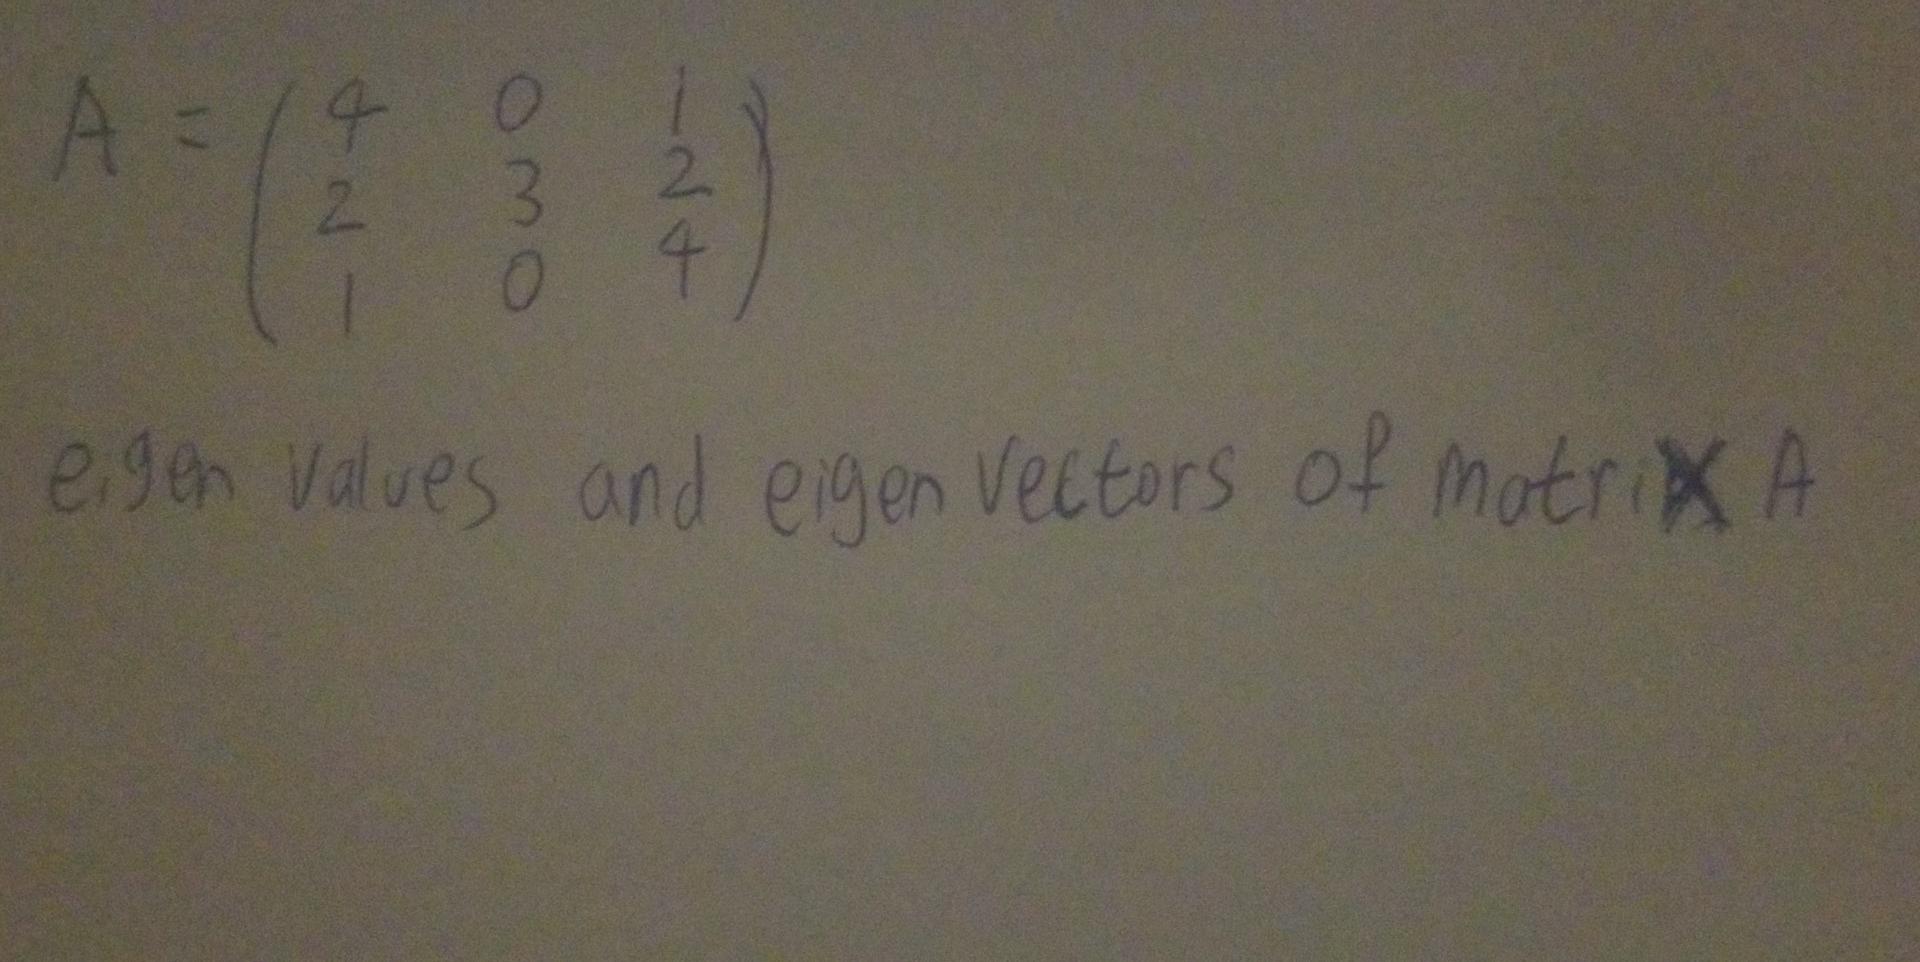 A = ( 4 0 1
2 3 2
1 0 4 )
eigen values and eigen vectors of matrix A